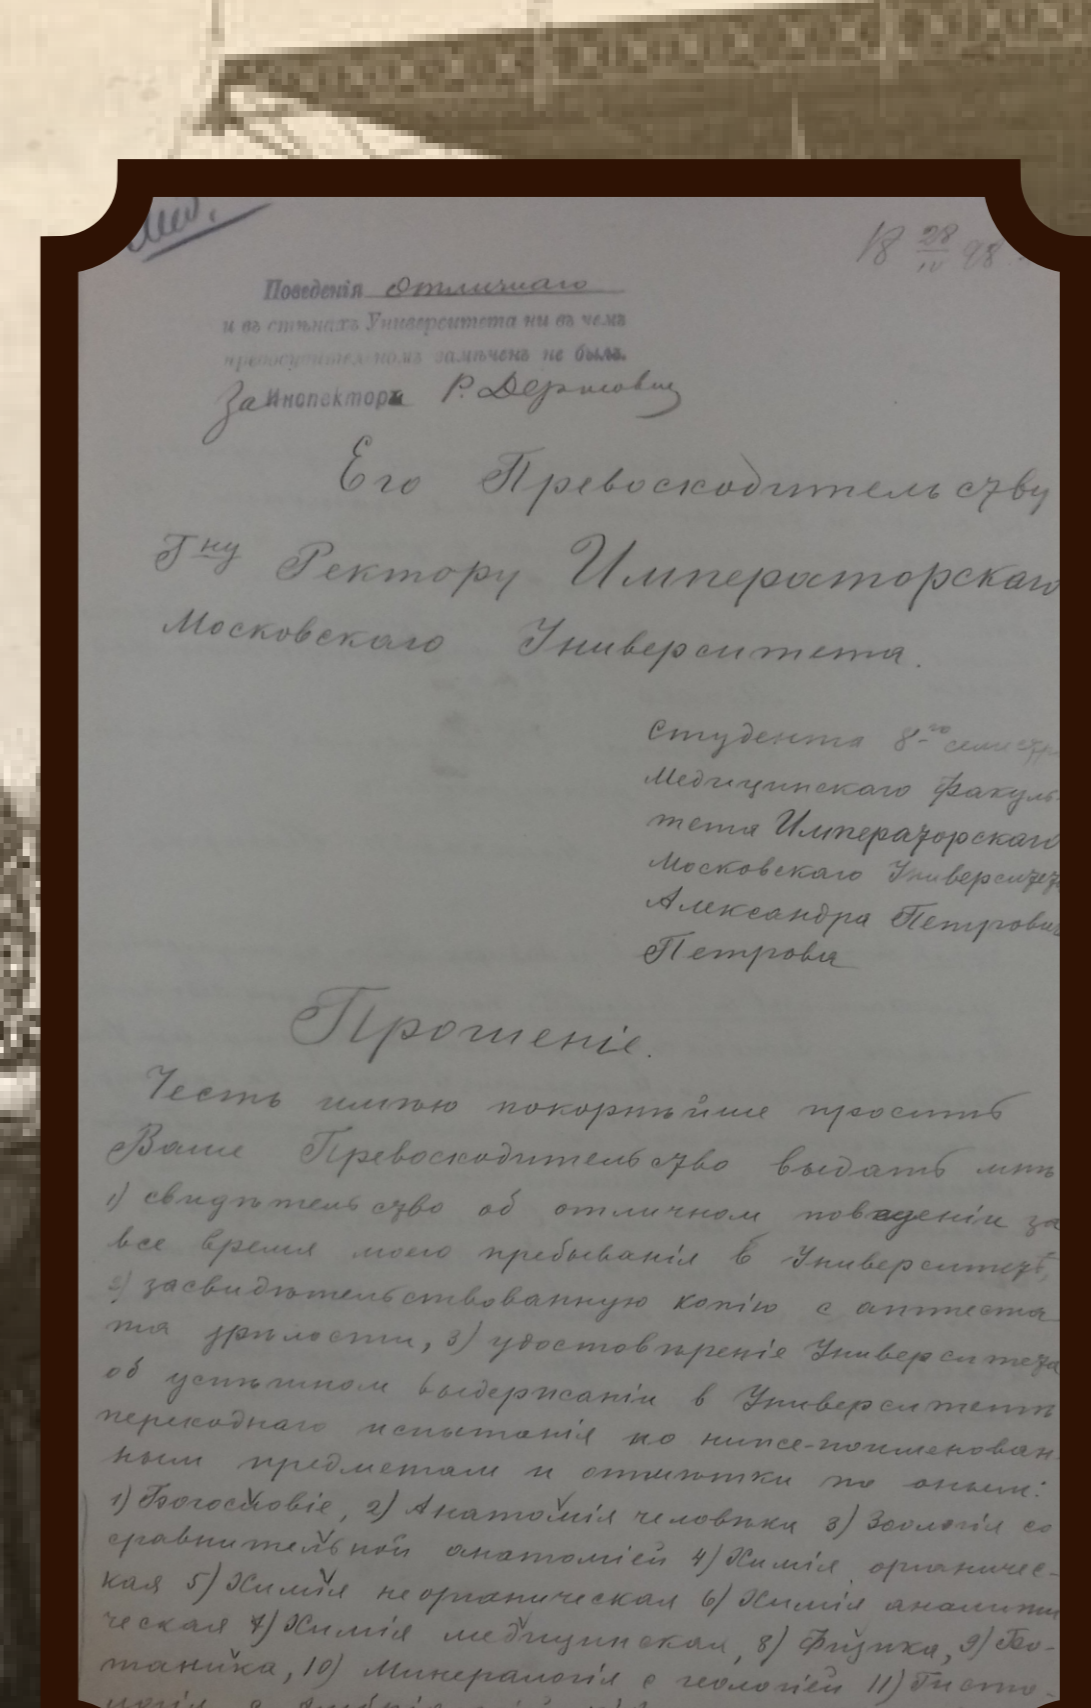 18 28/IV 98
Поведенія отличнаго
и въ стѣнахъ Университета ни въ чемъ
предосудительномъ замѣченъ не былъ.
За Инспектора
Его Превосходительству
Гну Ректору Императорскаго
Московскаго Университета.
Студента 8-го семестра
Медицинскаго Факуль-
тета Императорскаго
Московскаго Университета
Александра Петрович
Петрова
Прошеніе.
Честь имѣю покорнѣйше просить
Ваше Превосходительство выдать мнѣ
1) свидѣтельство об отличном поведеніи за
все время моего пребыванія в Университетѣ,
2) засвидѣтельствованную копію с аттеста
та зрѣлости, 3) удостовѣреніе Университета
об успѣшном выдержаніи в Университетѣ
переходнаго испытанія по ниже-поименован-
ным предметам и отмѣтки по оным:
1) Богословіе, 2) Анатомія человѣка 3) Зоологія со
сравнительной анатоміей 4) Химія органичес-
кая 5) Химія неорганическая 6) Химія аналити
ческая 7) Химія медицинская, 8) Физика, 9) Бо-
таника, 10) Минералогія с геологіей 11) Гисто-
логія с